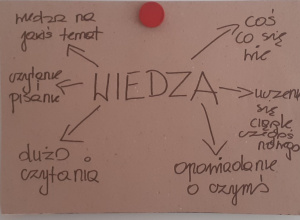 wiedza na
jakiś temat
coś
co się
wie
czytanie
pisanie
WIEDZA
uczenie
się
ciągle
czegoś
nowego
dużo
czytania
opowiadanie
o czymś